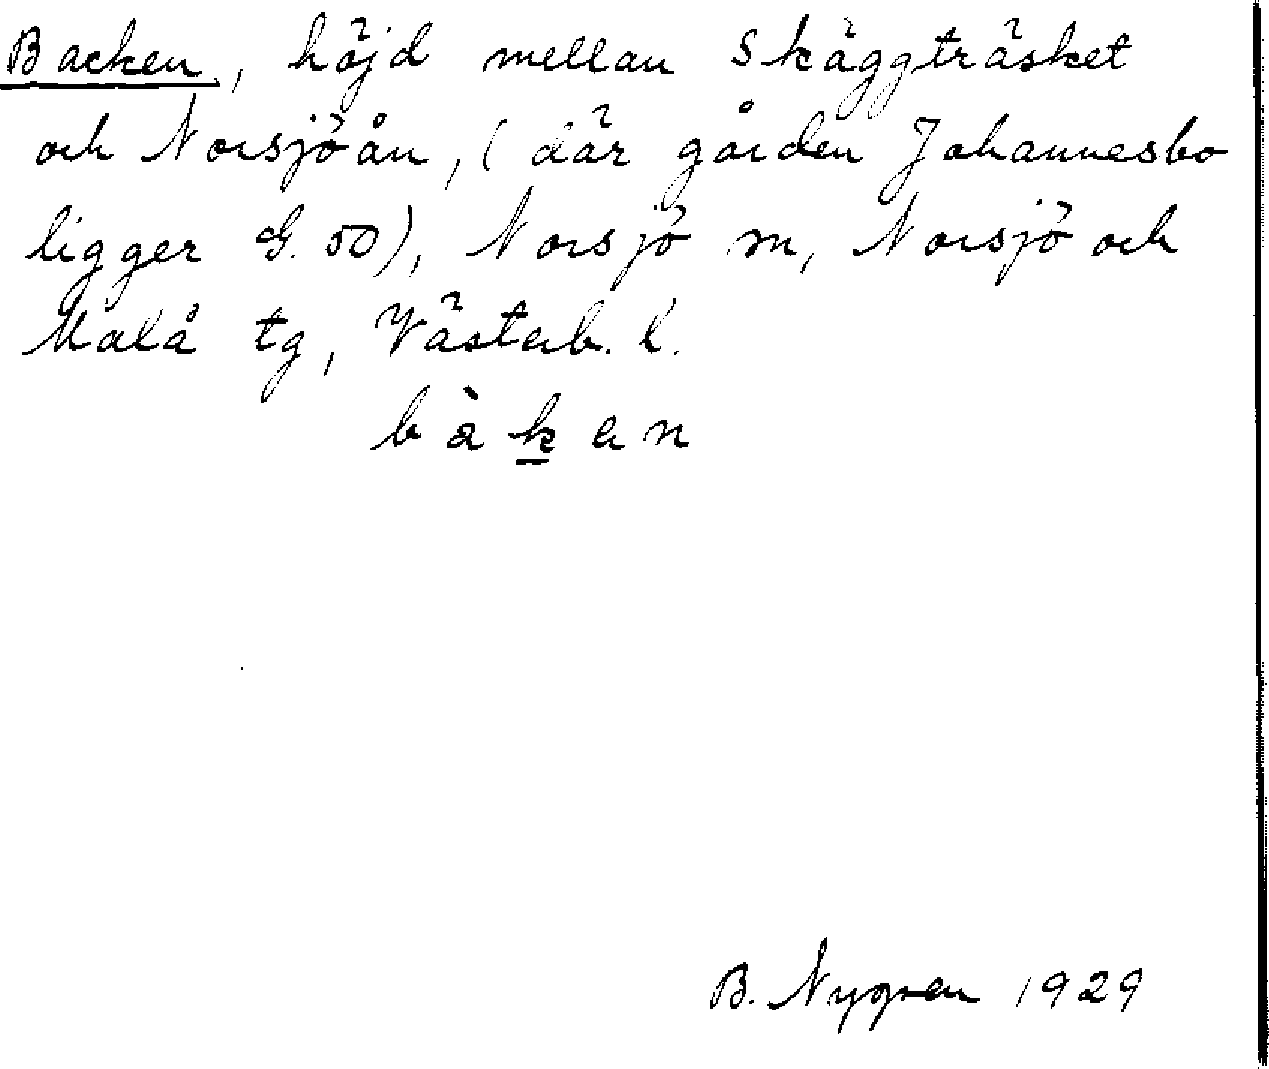 Backen, höjd mellan Skäggträsket
och Norsjöån, (där gården Johannesbo
ligger G. 50), Norsjö sn, Norsjö och
Malå tg, Västerb. l.
bàk̲en
B. Nygren 1929